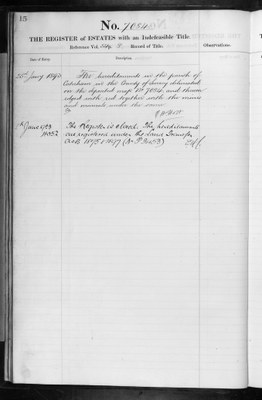 15
No. 7084
THE REGISTER of ESTATES with an Indefeasible Title.
Reference Vol. Folio Record of Title.
Observations.
Date of Entry.
Description
The hereditaments in the parish of
Caterham in the County of Surrey delineated
on the deposited map No. 7084 and thereon
edged with red together with the mines
and minerals under the same
The Register is closed. The hereditaments
are registered under the Land Transfer
Acts 1875 & 1897